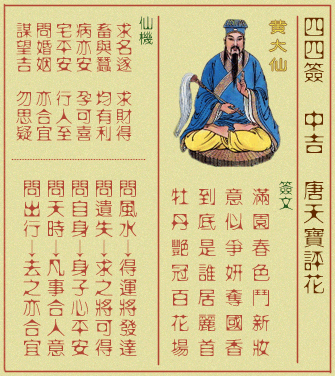 四四簽 中吉 唐天寶評花
黃大仙
簽文
滿園春色鬥新妝
意似爭妍奪國香
到底是誰居麗首
牡丹艷冠百花場
仙機
求名遂 求財得
畜與蠶 均有利
病亦安 孕可喜
宅平安 行人至
問婚姻 亦合宜
謀望吉 勿思疑
問風水→得運將發達
問遺失→求之將可得
問自身→身子心平安
問天時→凡事合人意
問出行→去之亦合宜